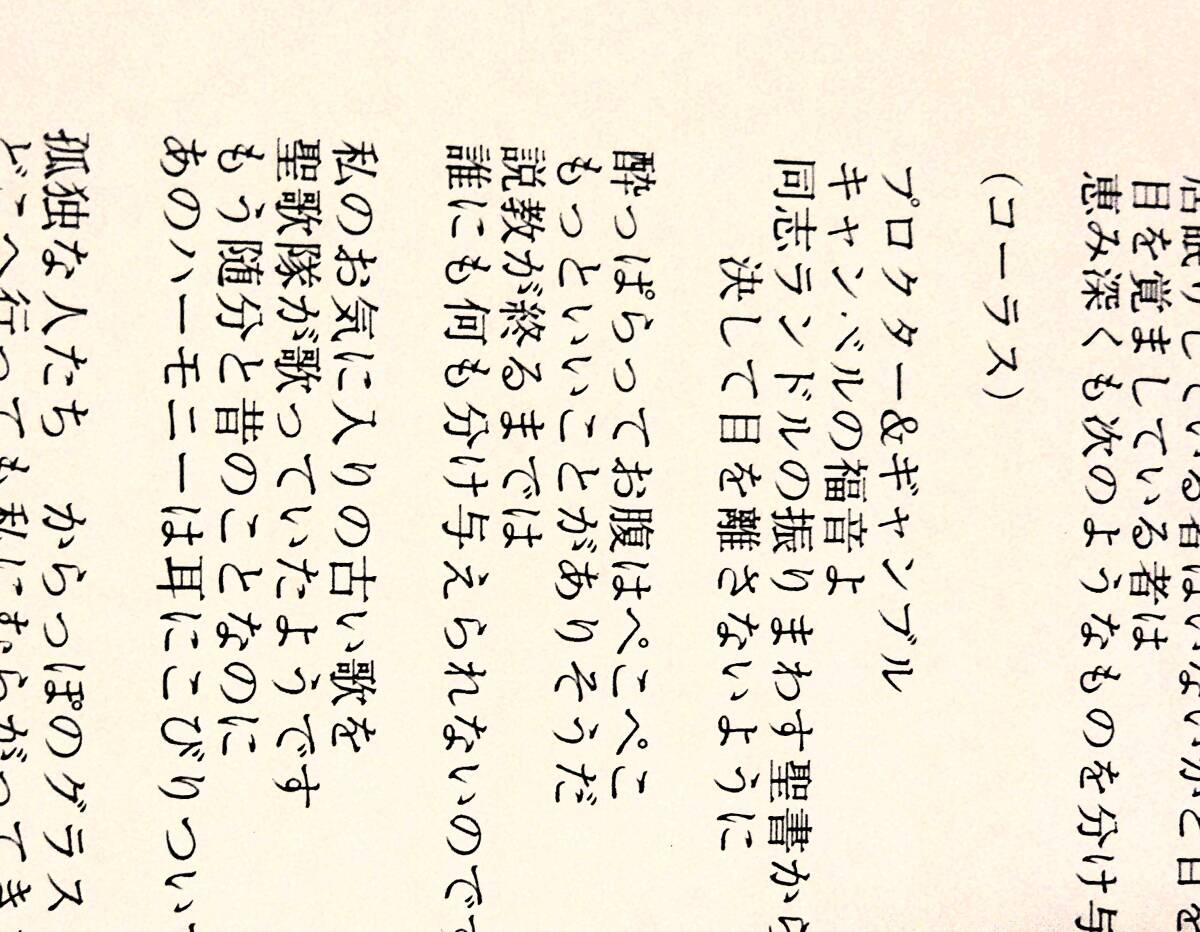 眠りしている者はいないかと目を
目を覚ましている者は
恵み深くも次のようなものを分け与
(コーラス)
プロクター&ギャンブル
キャンベルの福音よ
同志ランドルの振りまわす聖書から
決して目を離さないように
酔っぱらってお腹はぺこぺこ
もっといいことがありそうだ
説教が終るまでは
誰にも何も分け与えられないので
私のお気に入りの古い歌を
聖歌隊が歌っていたようです
もう随分と昔のことなのに
あのハーモニーは耳にこびりつい
孤独な人たち　からっぽのグラス
どこへ行っても私にむらがってき